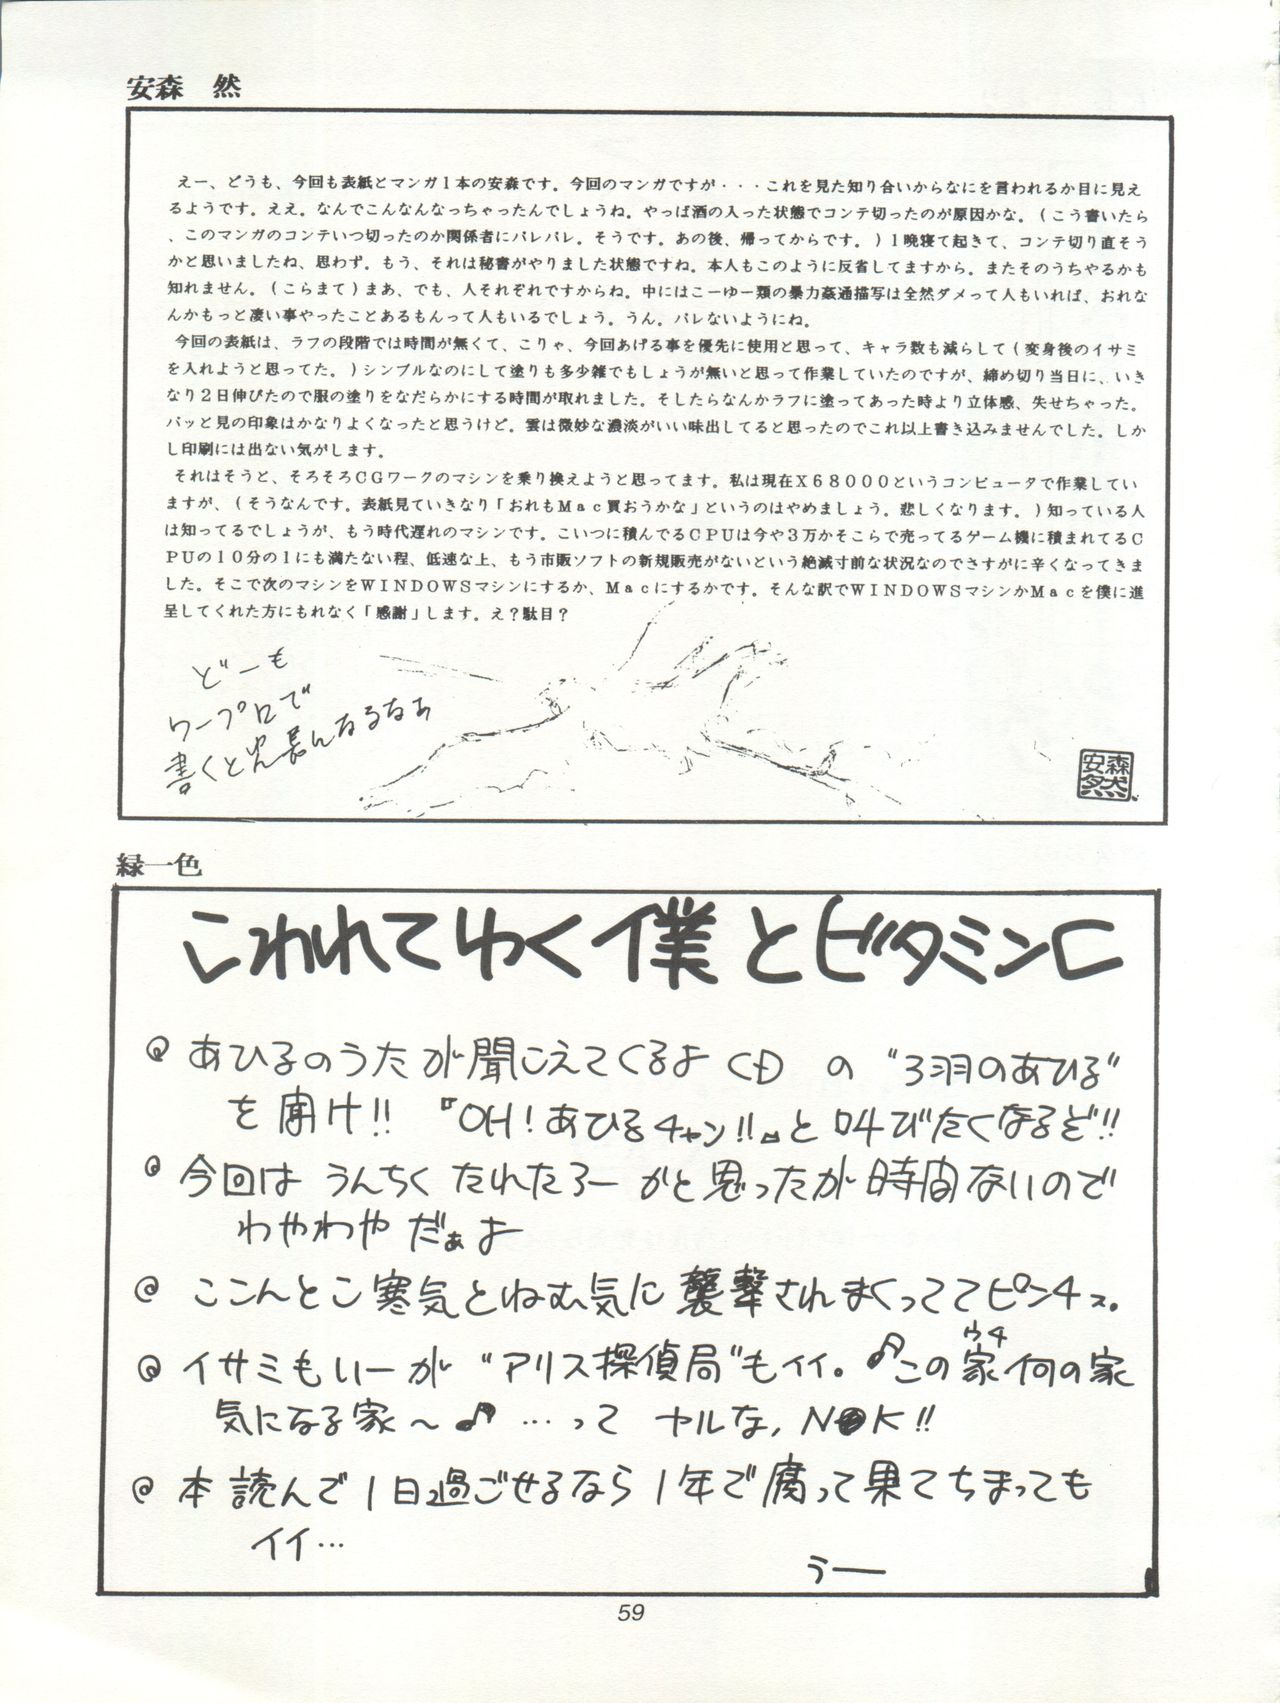 安森　然
えー、どうも、今回も表紙とマンガ１本の安森です。今回のマンガですが・・・これを見た知り合いからなにを言われるか目に見え
るようです。ええ。なんでこんなんなっちゃったんでしょうね。やっぱ酒の入った状態でコンテ切ったのが原因かな。（こう書いたら
、このマンガのコンテいつ切ったのか関係者にバレバレ。そうです。あの後、帰ってからです。）１晩寝て起きて、コンテ切り直そう
かと思いましたね、思わず。もう、それは秘書がやりました状態ですね。本人もこのように反省してますから。またそのうちやるかも
知れません。（こらまて）まあ、でも、人それぞれですからね。中にはこーゆー類の暴力姦通描写は全然ダメって人もいれば、おれな
んかもっと凄い事やったことあるもんって人もいるでしょう。うん。バレないようにね。
今回の表紙は、ラフの段階では時間が無くて、こりゃ、今回あげる事を優先に使用と思って、キャラ数も減らして（変身後のイサミ
を入れようと思ってた。）シンブルなのにして塗りも多少雑でもしょうが無いと思って作業していたのですが、締め切り当日に、いき
なり２日伸びたので服の塗りをなだらかにする時間が取れました。そしたらなんかラフに塗ってあった時より立体感、失せちゃった。
パッと見の印象はかなりよくなったと思うけど。雲は微妙な濃淡がいい味出してると思ったのでこれ以上書き込みませんでした。しか
し印刷には出ない気がします。
それはそうと、そろそろＣＧワークのマシンを乗り換えようと思ってます。私は現在Ｘ６８０００というコンピュータで作業してい
ますが、（そうなんです。表紙見ていきなり「おれもＭａｃ買おうかな」というのはやめましょう。悲しくなります。）知っている人
は知ってるでしょうが、もう時代遅れのマシンです。こいつに積んでるＣＰＵは今や３万かそこらで売ってるゲーム機に積まれてるＣ
ＰＵの１０分の１にも満たない程、低速な上、もう市販ソフトの新規販売がないという絶滅寸前な状況なのでさすがに辛くなってきま
した。そこで次のマシンをＷＩＮＤＯＷＳマシンにするか、Ｍａｃにするかです。そんな訳でＷＩＮＤＯＷＳマシンかＭａｃを僕に進
呈してくれた方にもれなく「感謝」します。え？駄目？
どーも
ワープロで
書くと文長んなるなぁ
安森
然
緑一色
こわれてゆく僕とビタミンC
あひるのうたが聞こえてくるよ CD の "3羽のあひる"
を聞け!! 『OH! あひるチャン!!』と叫びたくなるぞ!!
今回は うんちく たれたろー かと思ったが時間ないので
わやわや だぁよ
ここんとこ寒気とねむ気に襲撃されまくっててピンチス。
イサミもいーが "アリス探偵局"もイイ。♪この家何の家
ウチ
気になる家～♪ …って ヤルな, N●K!!
本読んで1日過ごせるなら1年で腐って果てちまっても
イイ…
うー
59